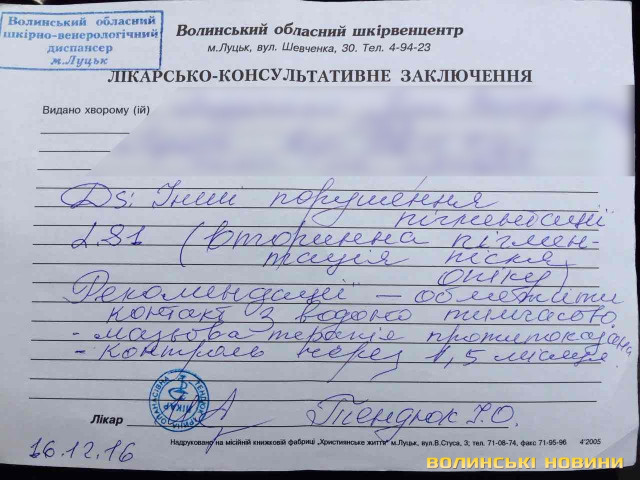 Волинський обласний
шкірно-венерологічний
диспансер
м.Луцьк
Волинський обласний шкірвенцентр
м.Луцьк, вул. Шевченка, 30. Тел. 4-94-23
ЛІКАРСЬКО-КОНСУЛЬТАТИВНЕ ЗАКЛЮЧЕННЯ
Видано хворому (ій)
Ds: Інші порушення
пігментації
L81 (вторинна пігмен-
тація після
опіку)
Рекомендації - обмежити
контакт з водою тимчасово
- мазьова терапія протипоказана
- контроль через 1,5 місяця.
Лікар
ЛІКАР
Тендюк І.О.
16.12.16
Надруковано на місійній книжковій фабриці „Християнське життя" м.Луцьк, вул.В.Стуса, 3; тел. 71-08-74, факс 71-95-96 4'2005
ВОЛИНСЬКІ НОВИНИ